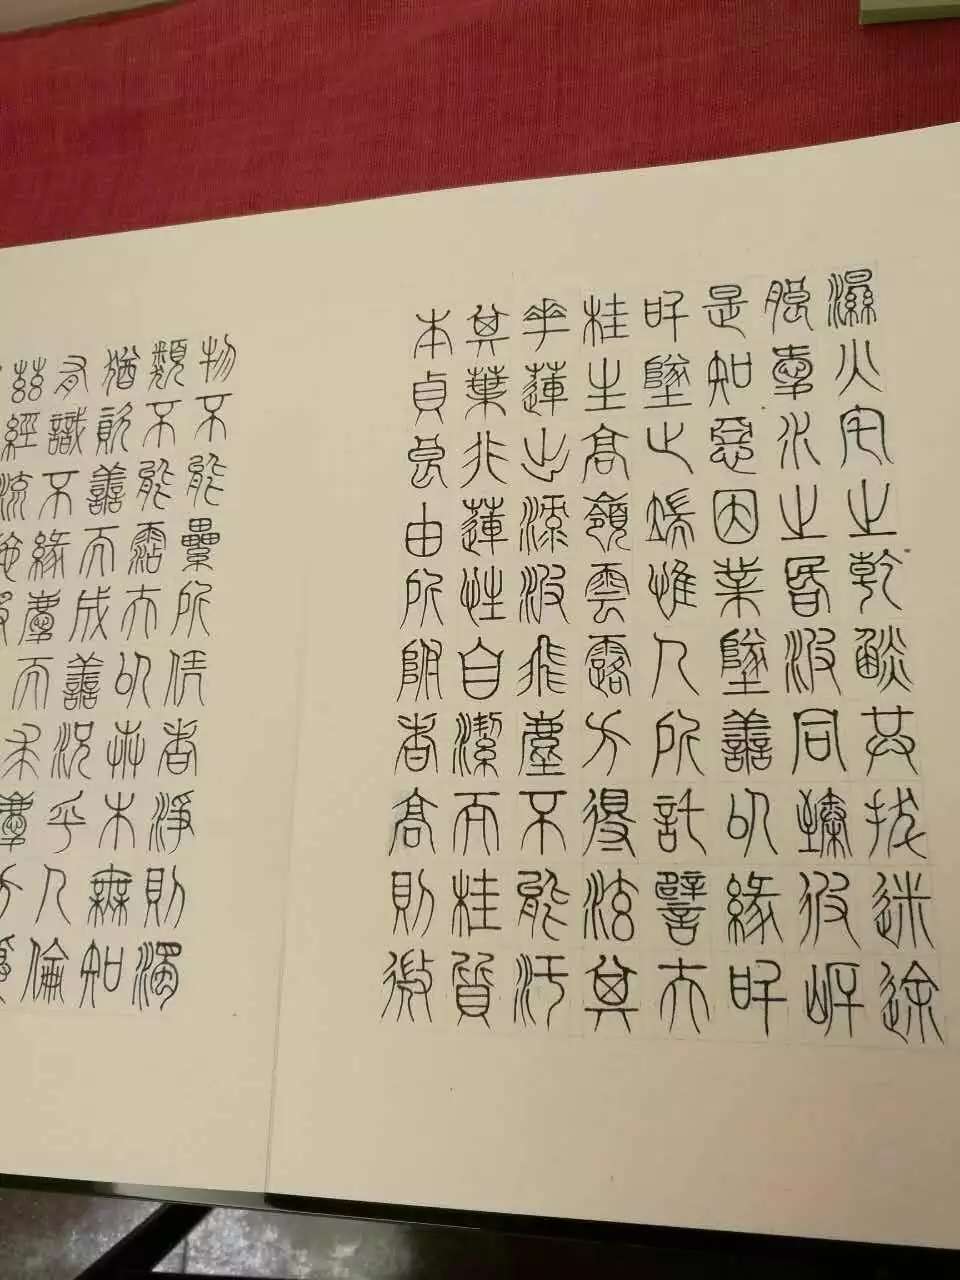 濕火宅之乾燄共拔迷途
朗愛水之昏波同臻彼岸
是知惡因業墜善以緣昇
昇墜之端惟人所託譬夫
桂生高嶺雲露方得泫其
華蓮出淥波飛塵不能汙
其葉非蓮性自潔而桂質
本貞良由所附者高則微
物不能累所憑者淨則濁
類不能霑夫以卉木無知
猶資善而成善況乎人倫
有識不緣慶而求慶方冀
茲經流施